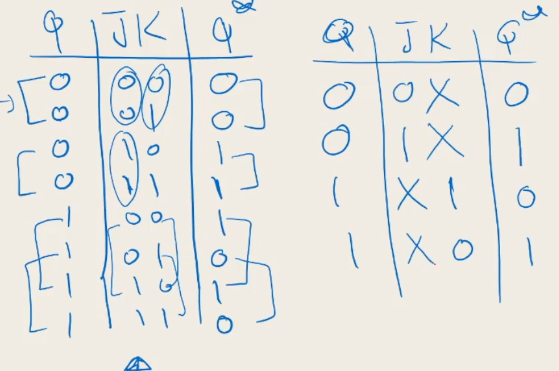 Q J K Q*
0 0 0 0
0 0 1 0
0 1 0 1
0 1 1 1
1 0 0 1
1 0 1 0
1 1 0 1
1 1 1 0
Q J K Q*
0 0 X 0
0 1 X 1
1 X 1 0
1 X 0 1